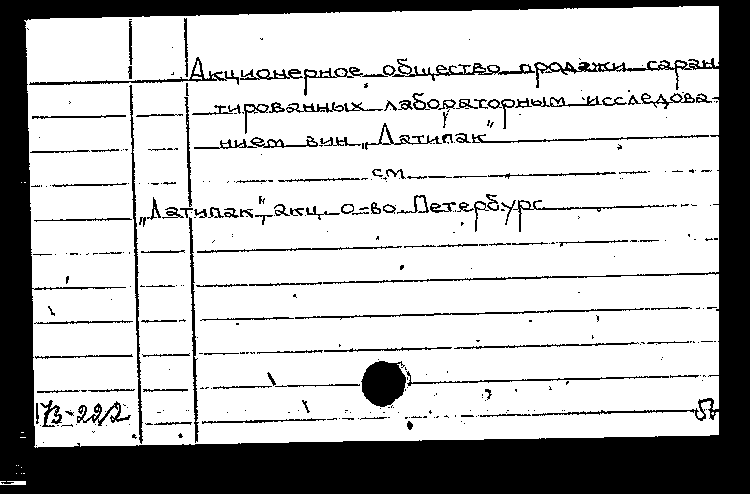 Акционерное общество продажи гаран
тированных лабораторным исследова-
нием вин „Латипак"
см.
„Латипак", акц. о-во. Петербург
173-22/2